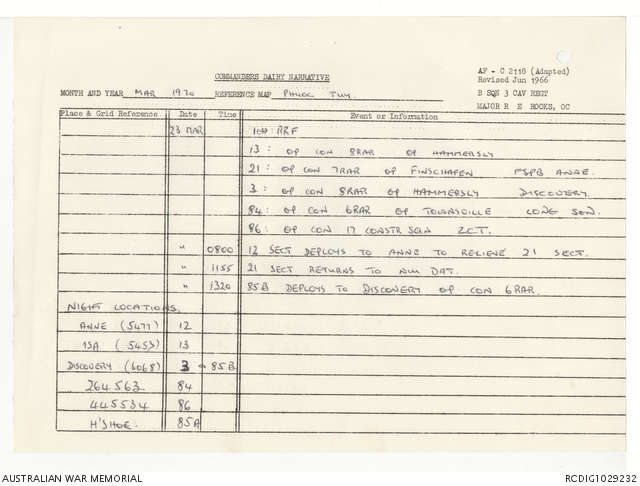 COMMANDERS DAIRY NARRATIVE
AF - C 2118 (Adapted)
Revised Jun 1966
MONTH AND YEAR MAR 1970 REFERENCE MAP PHUOC TUY
B SQN 3 CAV REGT
MAJOR R E ROOKS, OC
Place & Grid Reference Date Time Event or Information
23 MAR RRF
13: OP CON 8RAR OP HAMMERSLY
21: OP CON 7RAR OP FINSCHAFEN FSPB ANNE.
3: OP CON 8RAR OP HAMMERSLY DISCOVERY.
84: OP CON 6RAR OP TOWNSVILLE LONG SON.
86: OP CON 17 CONSTR SQN LCT.
" 0800 12 SECT DEPLOYS TO ANNE TO RELIEVE 21 SECT.
" 1155 21 SECT RETURNS TO NUI DAT.
" 1320 85B DEPLOYS TO DISCOVERY OP CON 6RAR.
NIGHT LOCATIONS.
ANNE (5477) 12
13A (5453) 13
DISCOVERY (6068) 3 + 85B
264563. 84
445534 86
H'SHOE. 85A
AUSTRALIAN WAR MEMORIAL RCDIG1029232